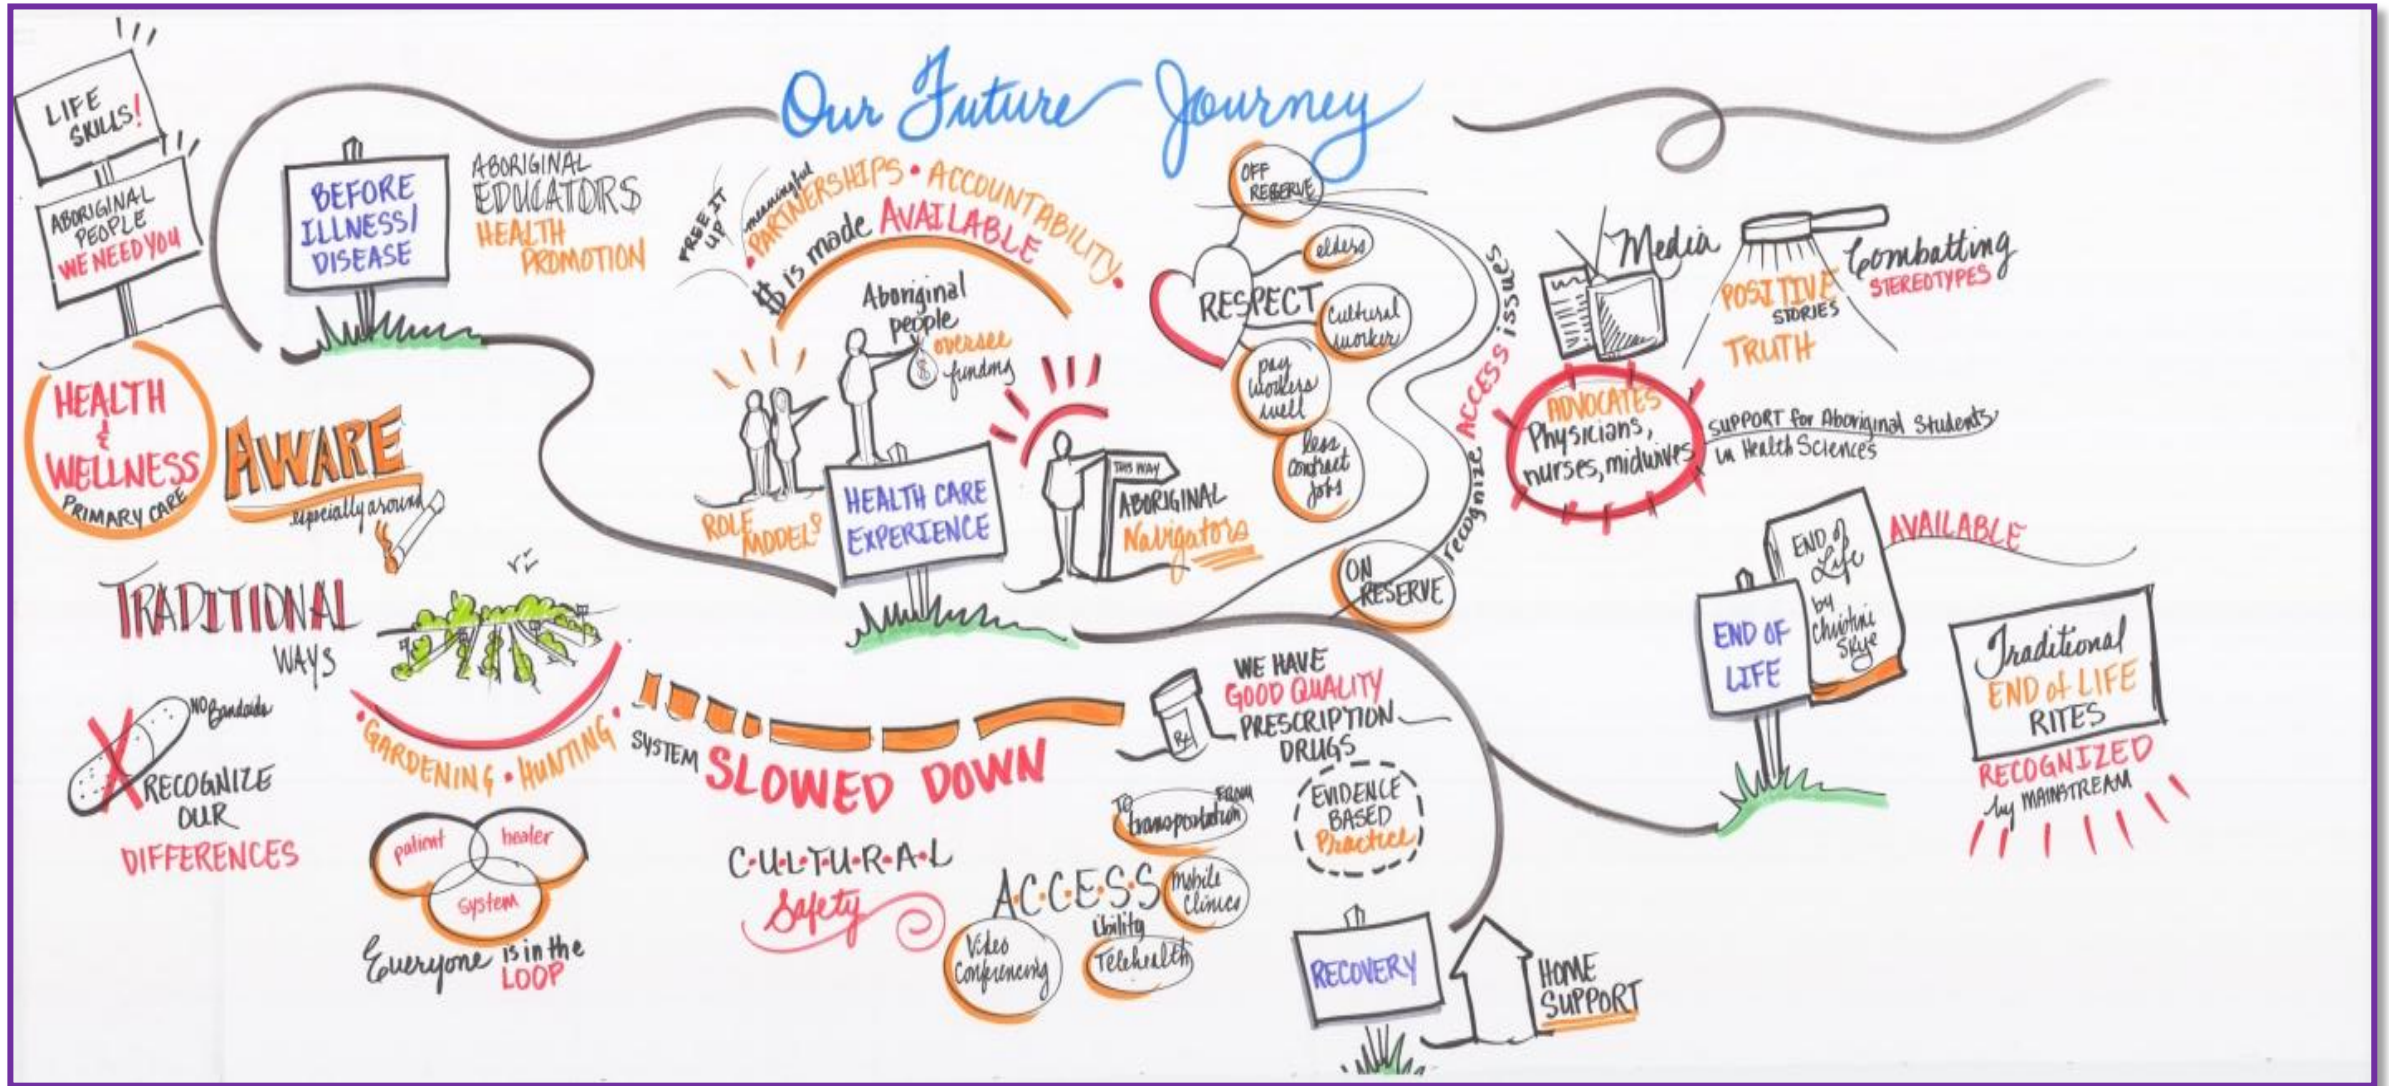 Our Future Journey
LIFE
SKILLS!
ABORIGINAL
PEOPLE
WE NEED YOU
BEFORE
ILLNESS/
DISEASE
ABORIGINAL
EDUCATORS
HEALTH
PROMOTION
HEALTH
&
WELLNESS
PRIMARY CARE
AWARE
especially around
TRADITIONAL
WAYS
NO Bandaids
RECOGNIZE
OUR
DIFFERENCES
• GARDENING • HUNTING •
patient
healer
system
Everyone is in the
LOOP
FREE IT
UP
meaningful
• PARTNERSHIPS • ACCOUNTABILITY •
$ is made AVAILABLE
Aboriginal
people
oversee
funding
$
ROLE
MODELS
HEALTH CARE
EXPERIENCE
THIS WAY
ABORIGINAL
Navigators
SYSTEM SLOWED DOWN
C•U•L•T•U•R•A•L
Safety
A•C•C•E•S•S
ibility
TO FROM
transportation
mobile
Clinics
Telehealth
Video
Conferencing
Rx
WE HAVE
GOOD QUALITY
PRESCRIPTION
DRUGS
EVIDENCE
BASED
Practice
RECOVERY
HOME
SUPPORT
RESPECT
OFF
RESERVE
elders
Cultural
worker
pay
workers
well
less
contract
jobs
ON
RESERVE
recognize ACCESS issues
Media
POSITIVE
STORIES
TRUTH
Combatting
STEREOTYPES
ADVOCATES
Physicians,
nurses, midwives
SUPPORT for Aboriginal Students
in Health Sciences
END OF
LIFE
END of
Life
by
Christine
Skye
AVAILABLE
Traditional
END of LIFE
RITES
RECOGNIZED
by MAINSTREAM